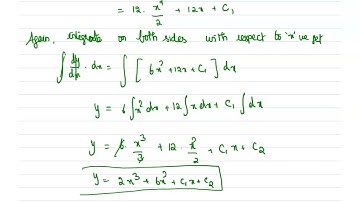 = 12 · x²/2 + 12x + C₁
Again, integrate on both sides with respect to 'x' we get
∫ dy/dx · dx = ∫ [ 6x² + 12x + C₁ ] dx
y = 6 ∫ x² dx + 12 ∫ x dx + C₁ ∫ dx
y = 6 · x³/3 + 12 · x²/2 + C₁ x + C₂
y = 2x³ + 6x² + C₁x + C₂